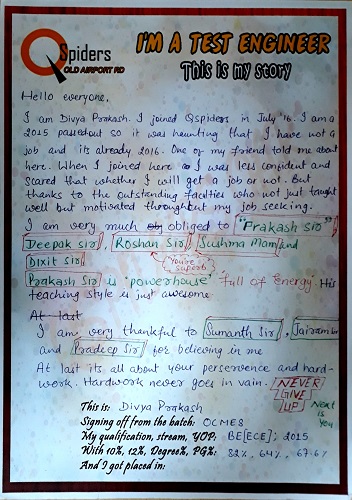 QSpiders
OLD AIRPORT RD
I'M A TEST ENGINEER
This is my story
Hello everyone,
I am Divya Prakash. I joined Qspiders in July '16. I am a
2015 passedout so it was haunting that I have not a
job and its already 2016. One of my friend told me about
here. When I joined here I was less confident and
scared that whether I will get a job or not. But
thanks to the outstanding faculties who not just taught
well but motivated throughout my job seeking.
I am very much obliged to "Prakash Sir"
Deepak Sir, Roshan Sir, Sushma Mam and
You're superb
Dixit Sir
Prakash Sir is "powerhouse" full of Energy. His
teaching style is just awesome.
At last
I am very thankful to Sumanth Sir, Jairam Sir
and Pradeep Sir for believing in me
At last its all about your perservence and hard-
work. Hardwork never goes in vain. NEVER
GIVE
UP
Next is You
This is: Divya Prakash
Signing off from the batch: OCMES
My qualification, stream, YOP: BE[ECE]; 2015
With 10%, 12%, Degree%, PG%: 82%, 64%, 67.6%
And I got placed in: